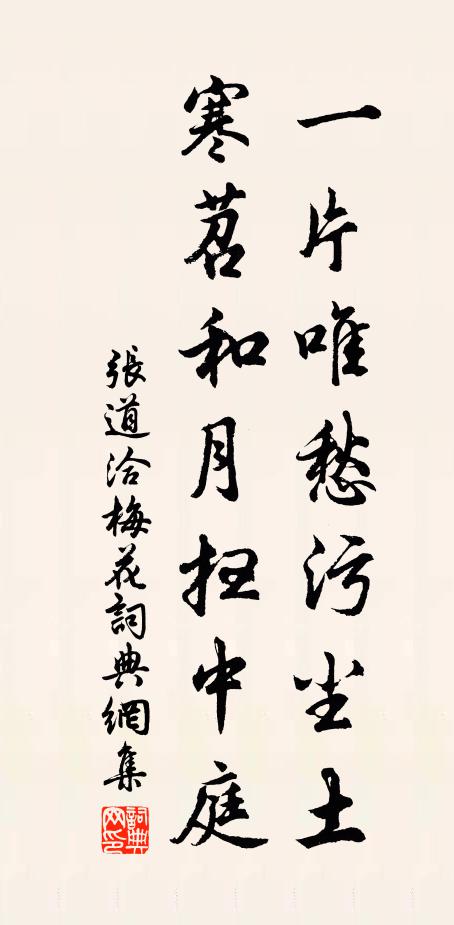 一片唯愁污尘土
寒苕和月扫中庭
張道洽梅花詞典網集
詞典网印